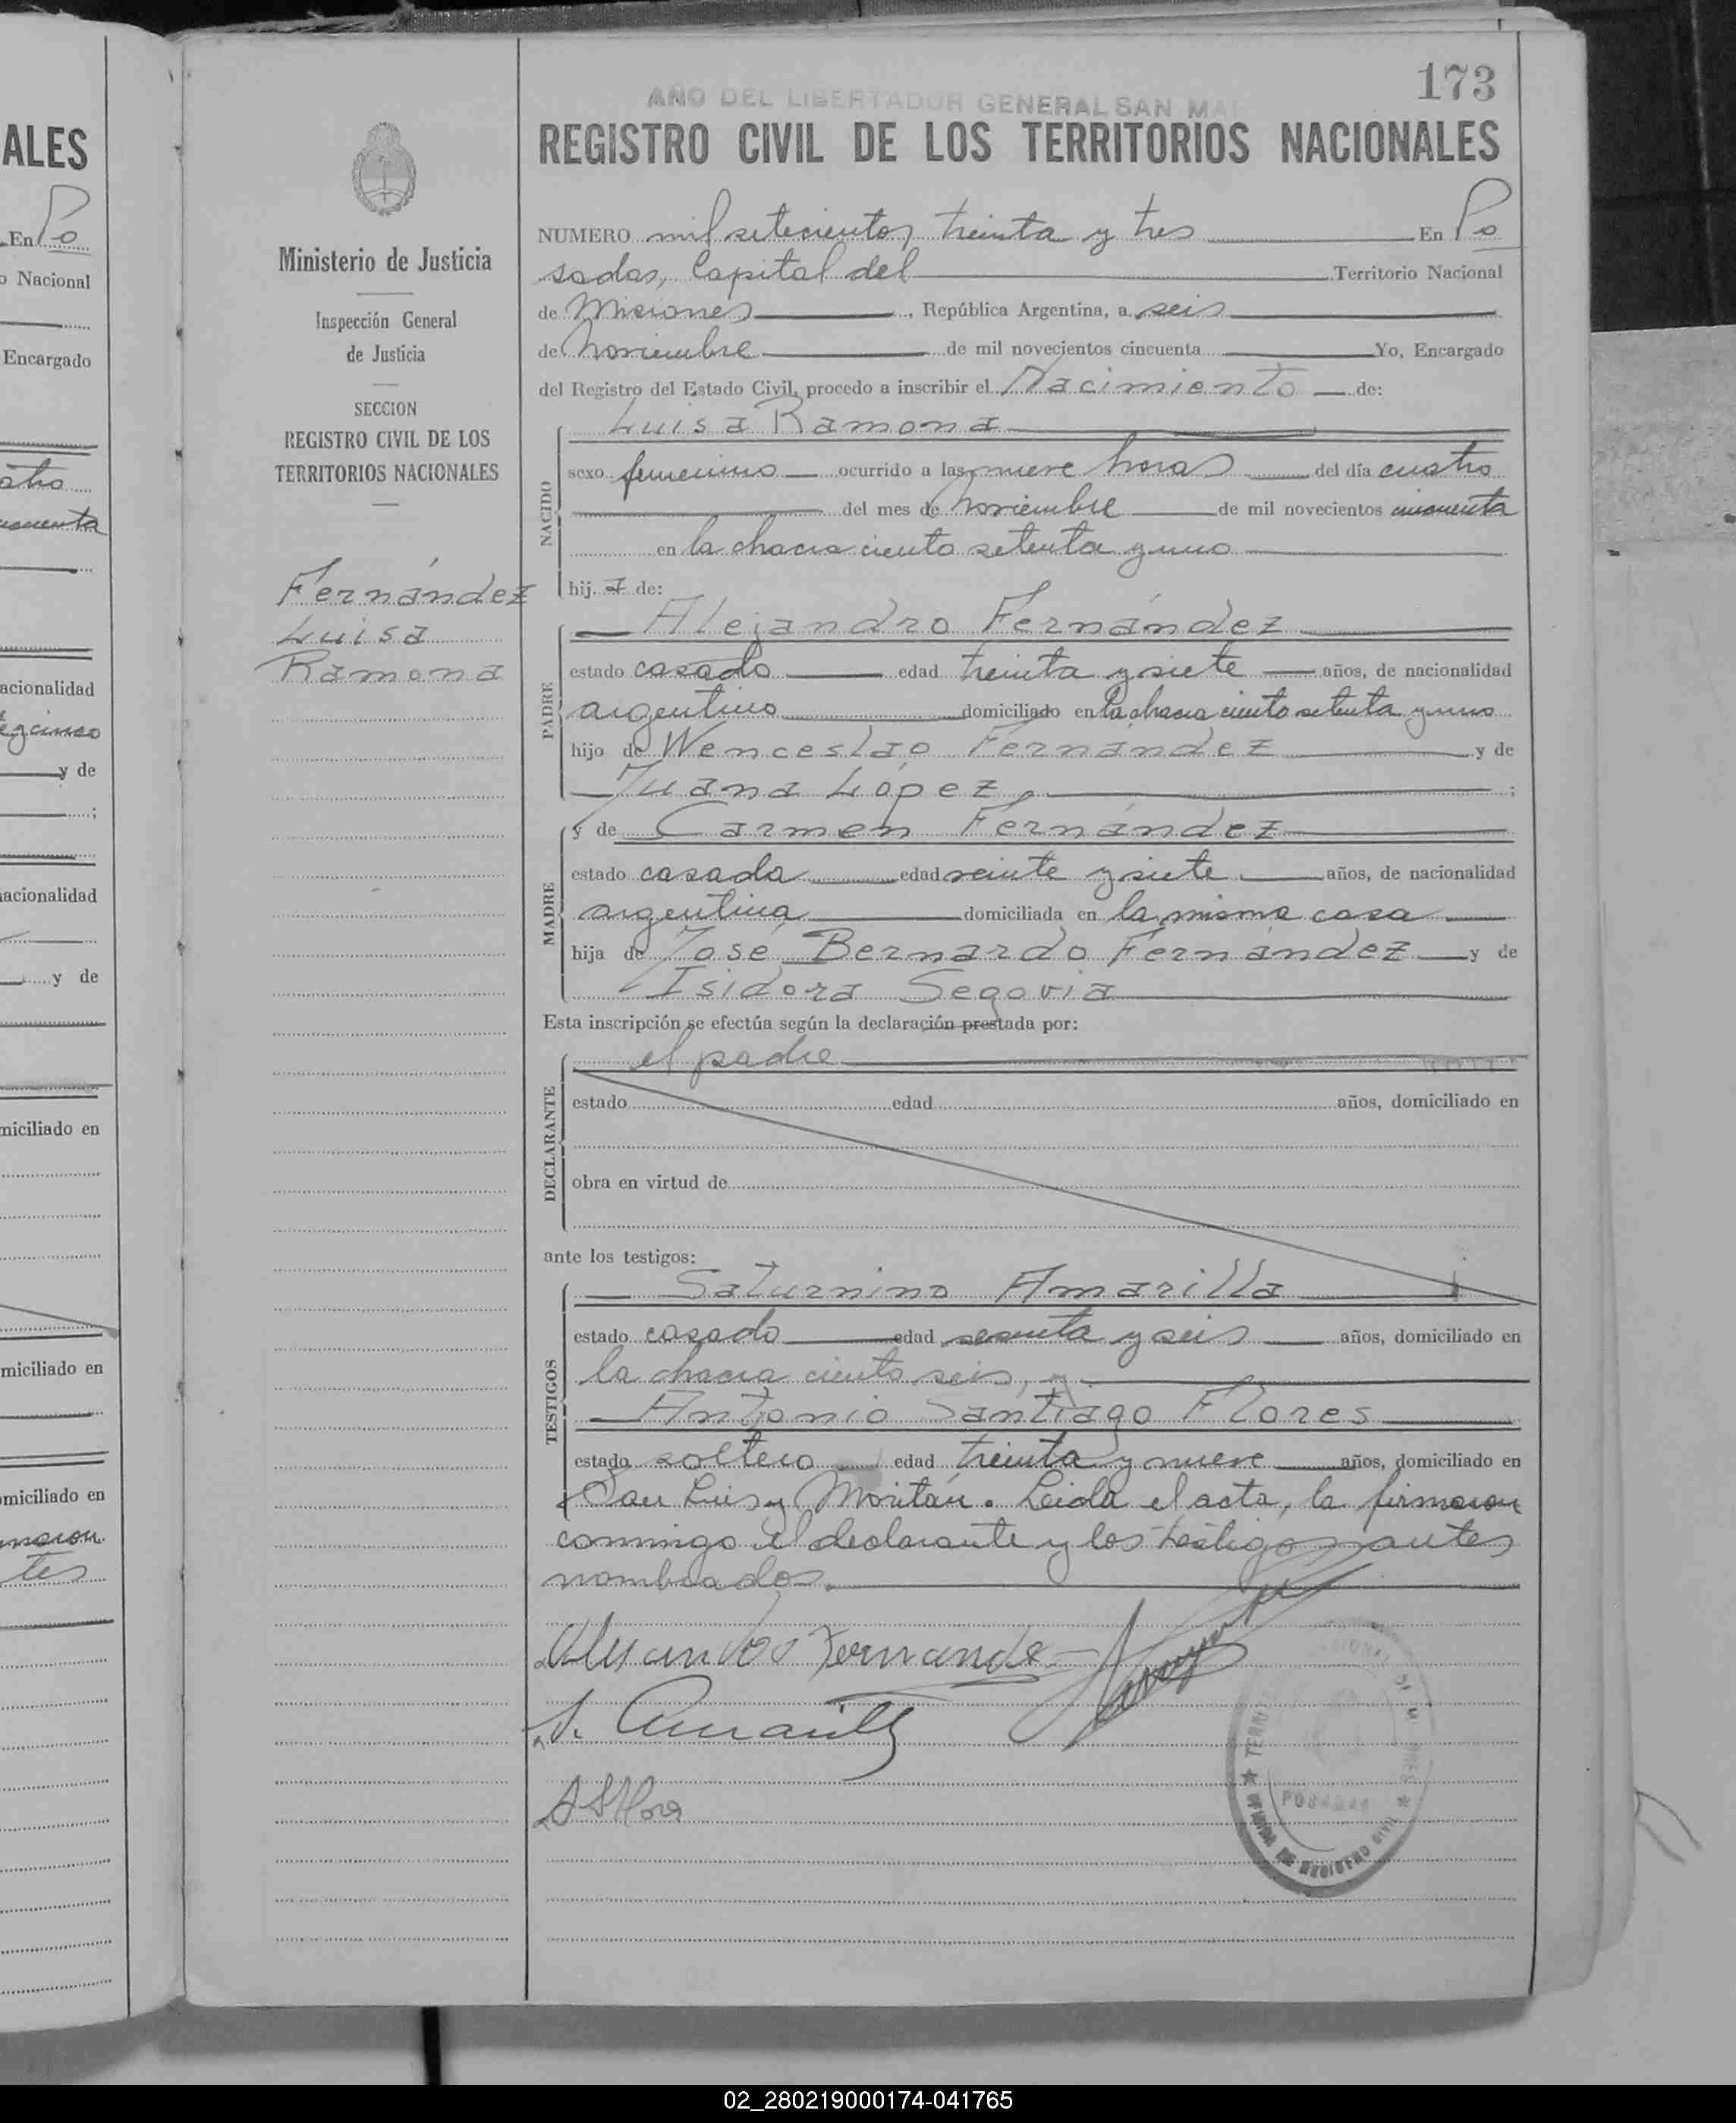 173
AÑO DEL LIBERTADOR GENERAL SAN MA
REGISTRO CIVIL DE LOS TERRITORIOS NACIONALES
Ministerio de Justicia
Inspección General
de Justicia
SECCION
REGISTRO CIVIL DE LOS
TERRITORIOS NACIONALES
Fernández
Luisa
Ramona
NUMERO mil setecientos treinta y tres En Po
sadas, Capital del Territorio Nacional
de Misiones, República Argentina, a seis
de Noviembre de mil novecientos cincuenta Yo, Encargado
del Registro del Estado Civil, procedo a inscribir el Nacimiento de:
NACIDO
Luisa Ramona
sexo femenino ocurrido a las nueve horas del día cuatro
del mes de Noviembre de mil novecientos cincuenta
en la chacra ciento setenta y uno
hij a de:
PADRE
Alejandro Fernández
estado casado edad treinta y siete años, de nacionalidad
argentino domiciliado en la chacra ciento setenta y uno
hijo de Wenceslao Fernández y de
Juana López ;
MADRE
y de Carmen Fernández
estado casada edad veinte y siete años, de nacionalidad
argentina domiciliada en la misma casa
hija de José Bernardo Fernández y de
Isidora Segovia
Esta inscripción se efectúa según la declaración prestada por:
DECLARANTE
el padre
estado edad años, domiciliado en
obra en virtud de
ante los testigos:
TESTIGOS
Saturnino Amarilla
estado casado edad sesenta y seis años, domiciliado en
la chacra ciento seis, y
Antonio Santiago Flores
estado soltero edad treinta y nueve años, domiciliado en
San Luis y Moritán. Leida el acta, la firmaron
conmigo el declarante y los testigos antes
nombrados.
Alejandro Fernandez
S. Amarilla
ASFlores
POSADAS
OFICINA DE REGISTRO CIVIL
ALES
En Po
o Nacional
Encargado
atro
cuenta
acionalidad
e y cinco
y de
;
nacionalidad
y de
miciliado en
miciliado en
omiciliado en
maron
tes
02_280219000174-041765